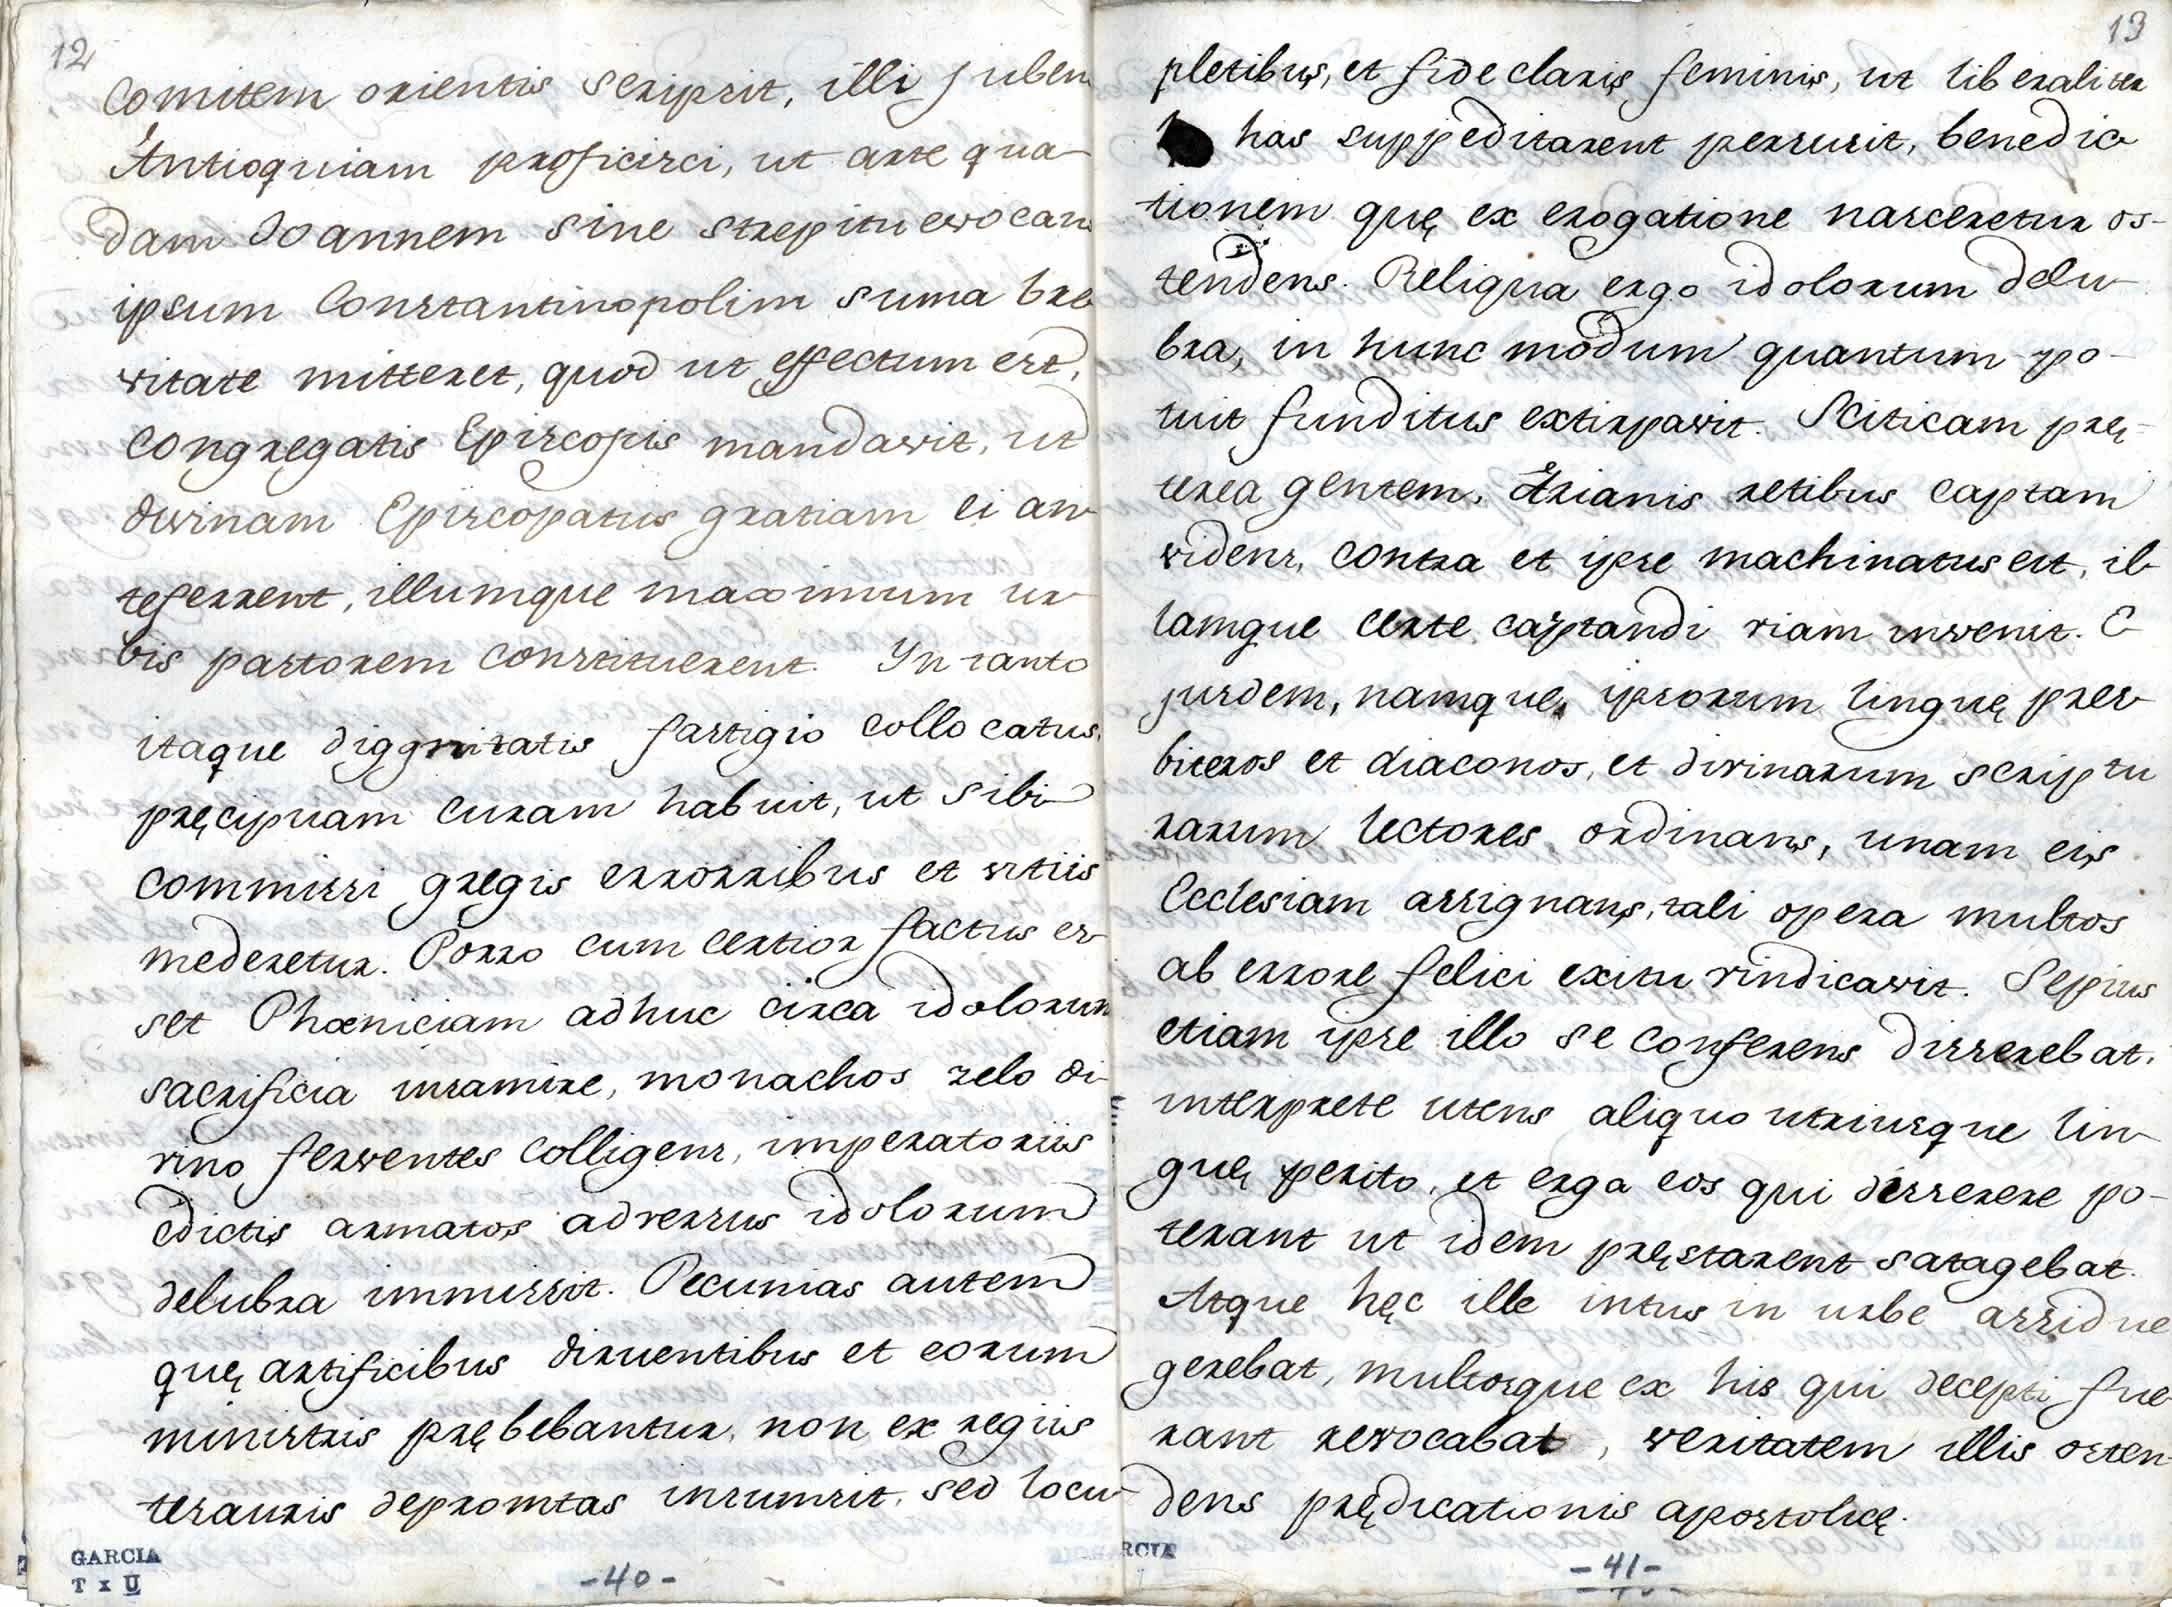 12
comitem orientis scripsit, illi juben
Antioquiam proficisci, ut arte qua
dam Joannem sine strepitu evocans
ipsum Constantinopolim suma bre
vitate mitteret, quod ut effectum est,
congregatis Episcopis mandavit, ut
divinam Episcopatus gratiam ei an
teferrent, illumque maximum ur
bis pastorem constituerent. Yn tanto
itaque diggnitatis fastigio collocatus,
pręcipuam curam habuit, ut sibi
commissi gregis errorribus et vitiis
mederetur. Porro cum certior factus es
set Phœniciam adhuc circa idolorum
sacrificia insanire, monachos zelo di
vino ferventes colligens, imperatoriis
edictis armatos adversus idolorum
delubra immissit. Pecunias autem
quę artificibus diruentibus et eorum
ministris prębebantur, non ex regiis
tesauris depromtas insumsit, sed locu
GARCIA
T x U
-40-
13
pletibus, et fide claris feminis, ut liberaliter
has suppeditarent persusit, benedic
tionem quę ex erogatione nasceretur os-
tendens. Reliqua ergo idolorum delu
bra, in hunc modum quantum po-
tuit funditus extirpavit. Sciticam prę-
terea gentem, Arianis retibus captam
videns, contra et ipse machinatus est, il
lamque certe captandi viam invenit. E
jusdem, namque, ipsorum linguę pres
biteros et diaconos, et divinarum scriptu
rarum lectores ordinans, unam eis
Ecclesiam assignans, tali opera multos
ab errore felici exitu vindicavit. Sepius
etiam ipse illo se conferens disserebat,
interprete utens aliquo utriusque lin
guę perito, et erga eos qui disserere po-
terant ut idem pręstarent satagebat.
Atque hęc ille intus in urbe assidue
gerebat, multosque ex his qui decepti fue
rant revocabat, veritatem illis osten-
dens prędicationis apostolicę.
RCIA
-41-